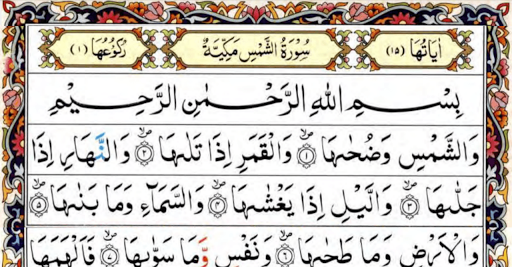 اٰيَاتُهَا (١٥) سُوْرَةُ الشَّمْسِ مَكِّيَّةٌ رُكُوْعُهَا (١)
بِسْمِ اللهِ الرَّحْمٰنِ الرَّحِيْمِ
وَالشَّمْسِ وَضُحٰىهَا ۝١ وَالْقَمَرِ اِذَا تَلٰىهَا ۝٢ وَالنَّهَارِ اِذَا
جَلّٰىهَا ۝٣ وَالَّيْلِ اِذَا يَغْشٰىهَا ۝٤ وَالسَّمَآءِ وَمَا بَنٰىهَا ۝٥
وَالْاَرْضِ وَمَا طَحٰىهَا ۝٦ وَنَفْسٍ وَّمَا سَوّٰىهَا ۝٧ فَاَلْهَمَهَا